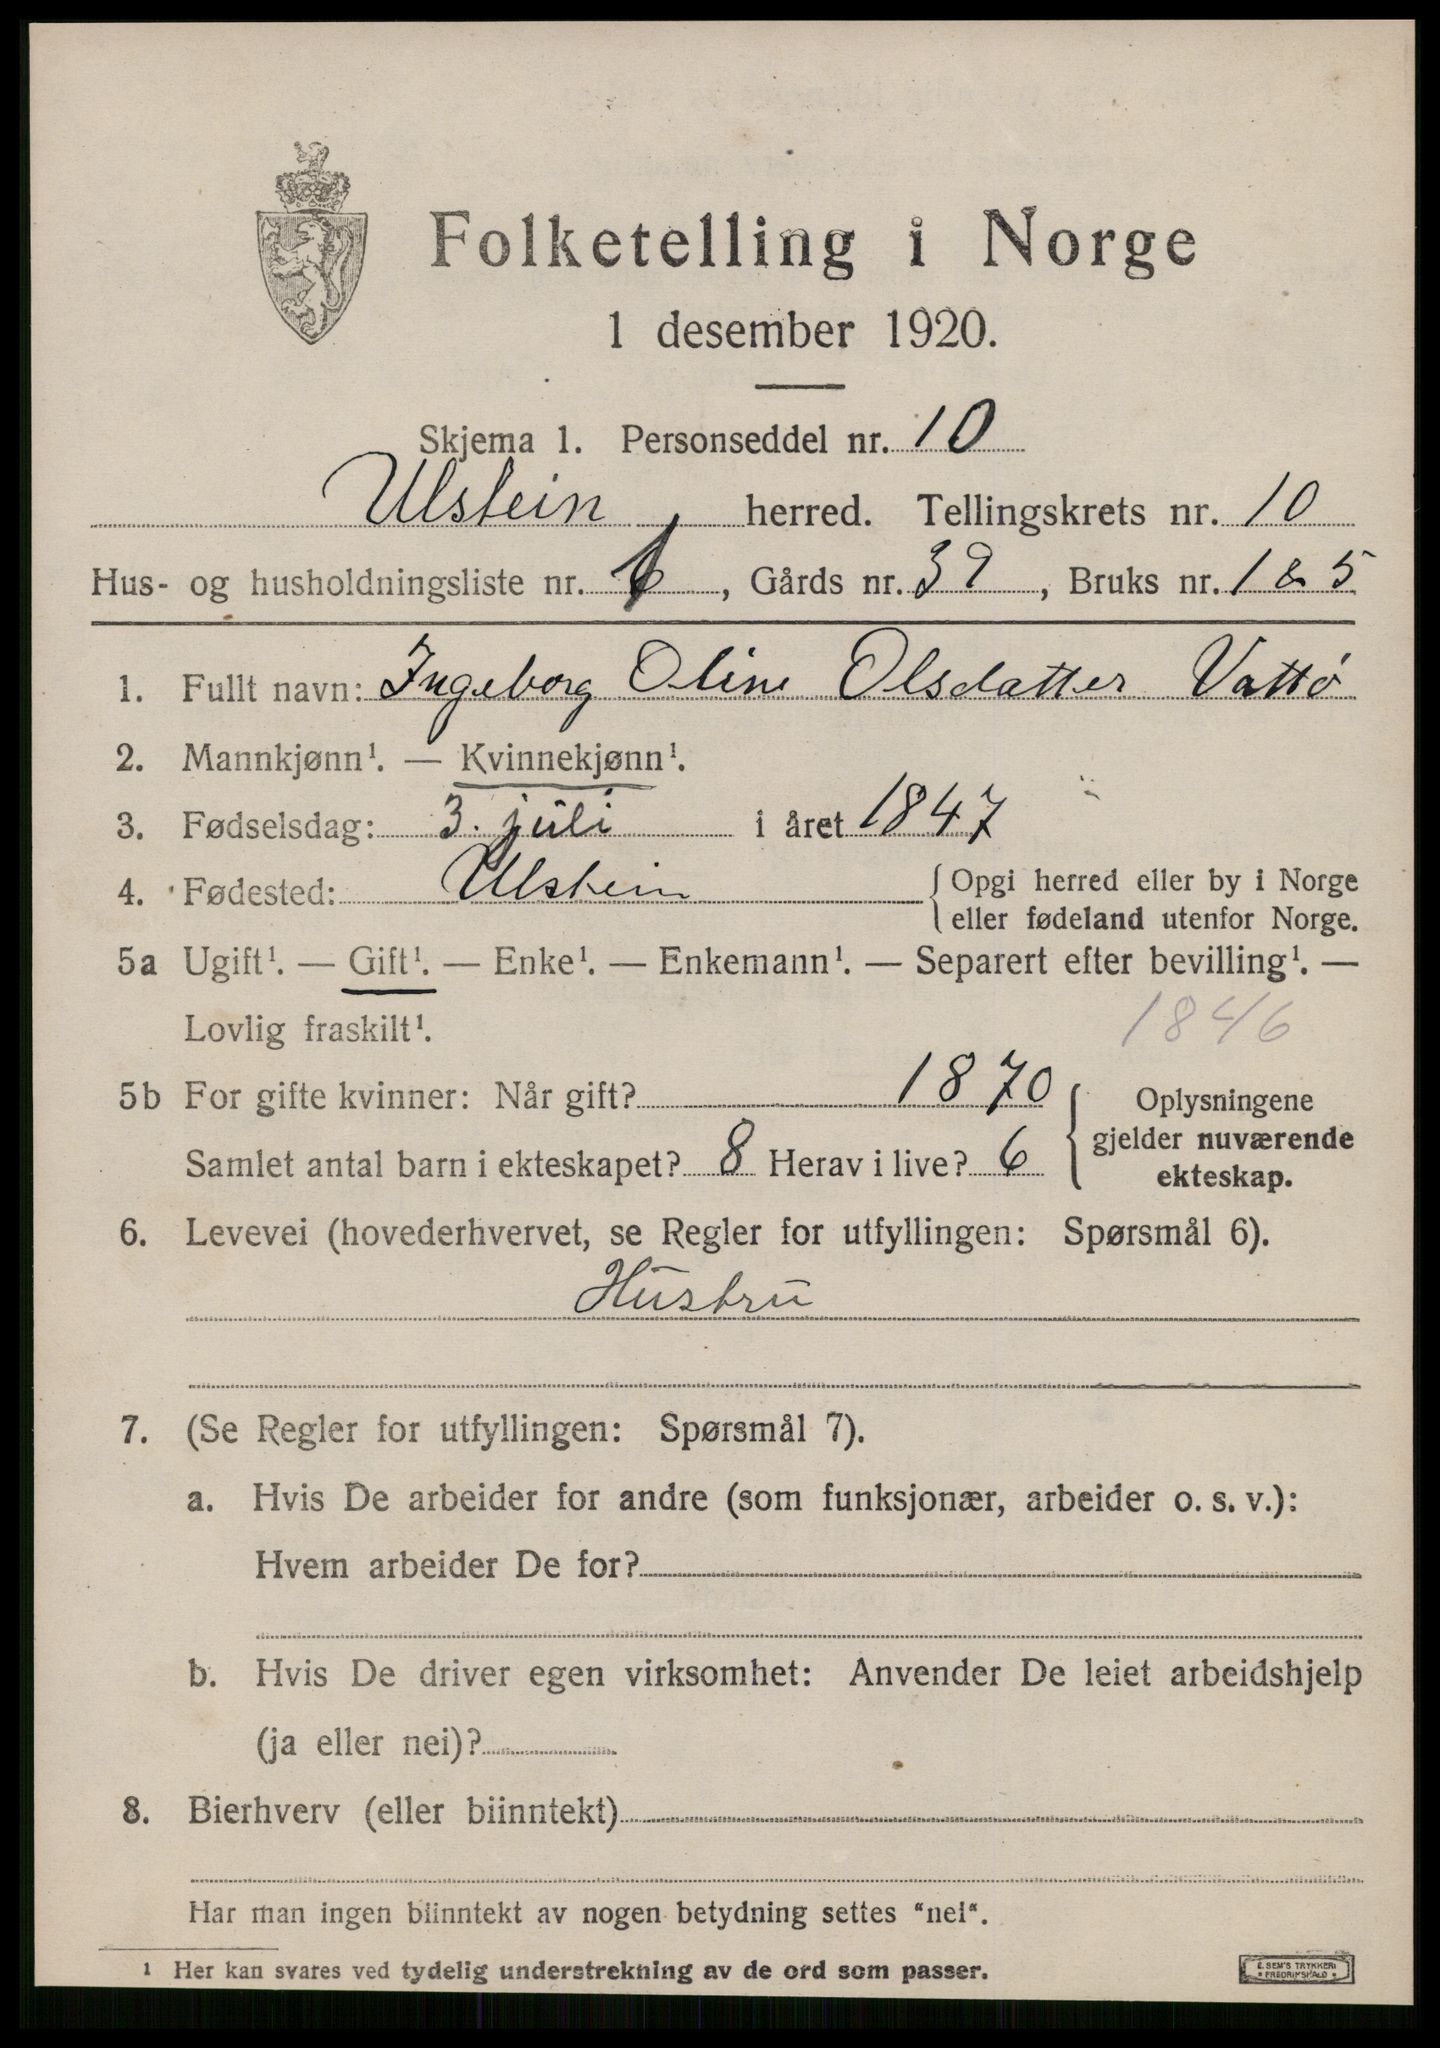 Folketelling i Norge
1 desember 1920.
Skjema 1. Personseddel nr. 10
Ulstein herred. Tellingskrets nr. 10
Hus- og husholdningsliste nr. , Gårds nr. 39, Bruks nr. 1 & 5
1. Fullt navn: Ingeborg Oline Olsdatter Vattö
2. Mannkjønn¹. — Kvinnekjønn¹.
3. Fødselsdag: 3. juli i året 1847
4. Fødested: Ulstein {Opgi herred eller by i Norge
eller fødeland utenfor Norge.
5a Ugift¹. — Gift¹. — Enke¹. — Enkemann¹. — Separert efter bevilling¹. —
Lovlig fraskilt¹. 1846
5b For gifte kvinner: Når gift? 1870
Samlet antal barn i ekteskapet? 8 Herav i live? 6
{Oplysningene
gjelder nuværende
ekteskap.
6. Levevei (hovederhvervet, se Regler for utfyllingen: Spørsmål 6).
Hustru
7. (Se Regler for utfyllingen: Spørsmål 7).
a. Hvis De arbeider for andre (som funksjonær, arbeider o. s. v.):
Hvem arbeider De for?
b. Hvis De driver egen virksomhet: Anvender De leiet arbeidshjelp
(ja eller nei)?
8. Bierhverv (eller biinntekt)
Har man ingen biinntekt av nogen betydning settes "nei".
1 Her kan svares ved tydelig understrekning av de ord som passer.
E. SEM'S TRYKKERI
FREDRIKSHALD